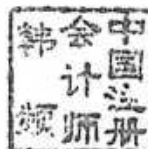 中国注册
会计师
韩频